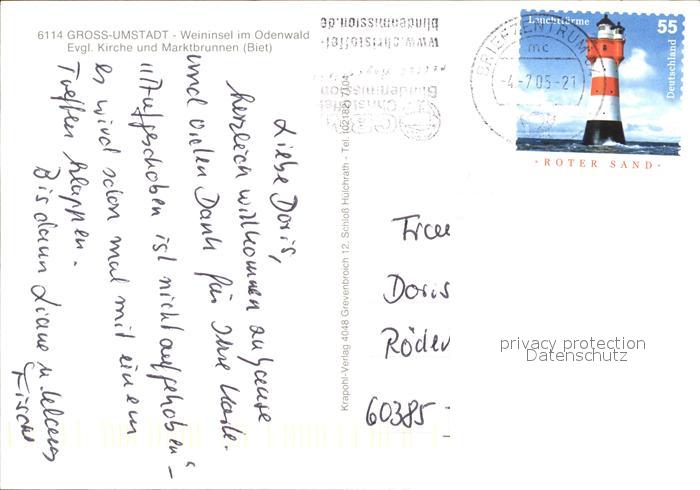 6114 GROSS-UMSTADT - Weininsel im Odenwald
Evgl. Kirche und Marktbrunnen (Biet)
Liebe Doris,
herzlich willkommen zuhause
und vielen Dank für Ihre Karte.
"Aufgeschoben ist nicht aufgehoben" -
es wird schon mal mit einem
Treffen klappen.
Bis dann Liane u.
Krapohl-Verlag 4048 Grevenbroich 12, Schloß Hülchrath - Tel. (02182) 7104
www.christoffel-
blindenmission.de
Christoffel
Blindenmission
BRIEFZENTRUM
mc
-4.-7.05-21
Leuchttürme
55
Deutschland
· ROTER SAND ·
Frau
Doris
Röder
60385
privacy protection
Datenschutz